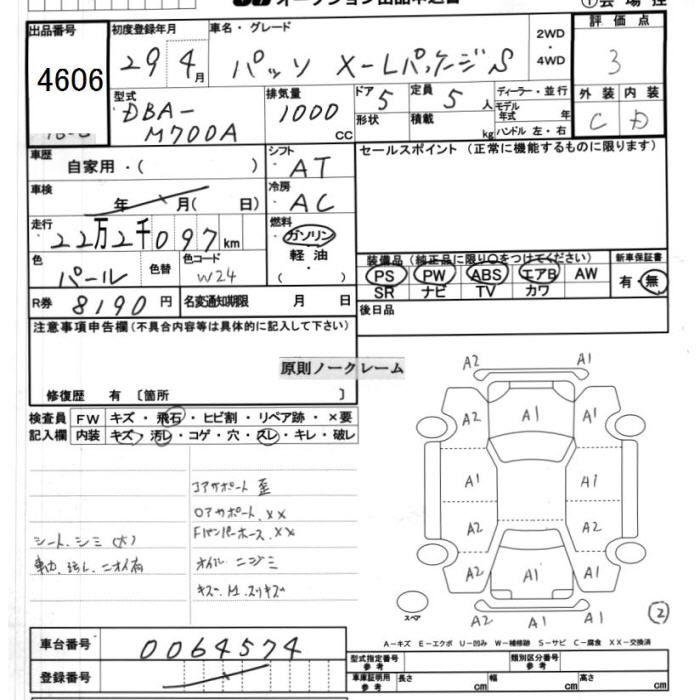 オークション出品申込書 ①会場控
出品番号 初度登録年月 車名・グレード 2WD・4WD 評価点
4606 29年4月 パッソ X-Lパッケージ S 3
型式 DBA-M700A 排気量 1000 CC ドア 5 定員 5人 ディーラー・並行 外装 内装
形状 積載 kg モデル年式 年 ハンドル 左・右 C D
車歴 自家用・( ) シフト AT セールスポイント (正常に機能するものに限ります)
車検 年 月( 日) 冷房 AC
走行 22万2千097km 燃料 ガソリン 軽油・
色 パール 色替 色コード W24 装備品(純正品に限り○をつけてください) 新車保証書
PS PW ABS エアB AW 有・無
SR ナビ TV カワ
R券 8190円 名変通知期限 月 日 後日品
注意事項申告欄(不具合内容等は具体的に記入して下さい)
原則ノークレーム
修復歴 有 〔箇所 〕
検査員 FW キズ・飛石・ヒビ割・リペア跡・×要
記入欄 内装 キズ・汚レ・コゲ・穴・スレ・キレ・破レ
コアサポート 歪
ロアサポート.XX
シート.シミ(大) FバンパーホースXX
車内.汚レ.ニオイ有 オイルニジミ
キズ.M.スリキズ
A2 A1
A2 A1 A1
A1 A1
A2 A2
A2 A1 A1
スペア A2 A1 A1 ②
A-キズ E-エクボ U-凹み W-補修跡 S-サビ C-腐食 XX-交換済
車台番号 0064574 型式指定番号 参考 類別区分番号 参考
登録番号 車庫証明用 参考 長さ cm 幅 cm 高さ cm